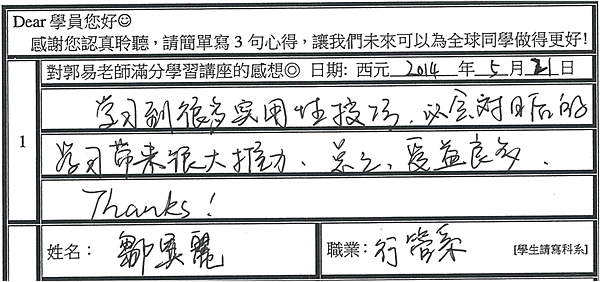 Dear 學員您好☺
感謝您認真聆聽，請簡單寫 3 句心得，讓我們未來可以為全球同學做得更好!
對郭易老師滿分學習講座的感想◎ 日期: 西元 2014 年 5 月 21 日
1
学习到很多实用性技巧，以会对日后的
学习带来很大推力、总之，受益良多.
Thanks!
姓名： 鄒 麗
職業: 行管系 [學生請寫科系]